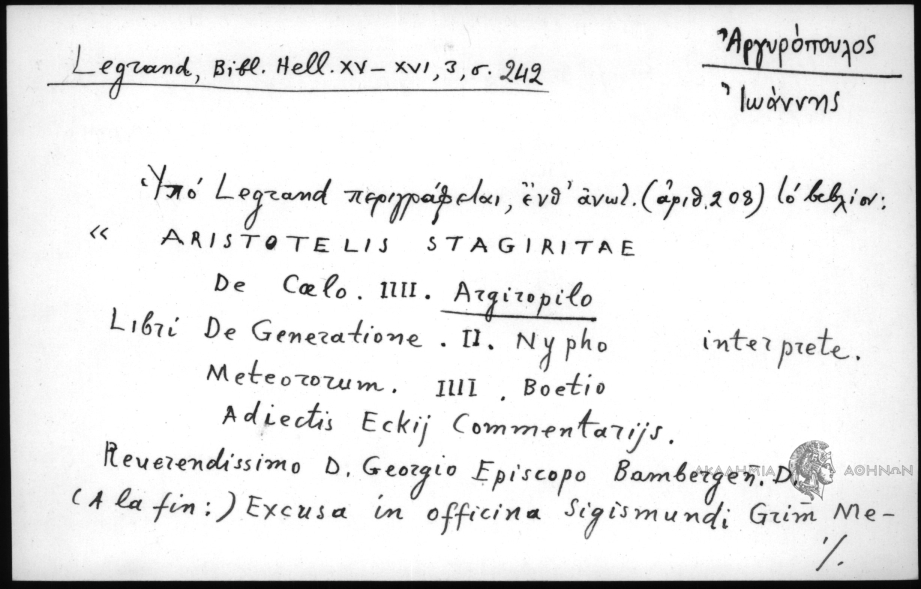 Legrand, Bibl. Hell. XV – XVI, 3, σ. 242
Ἀργυρόπουλος
Ἰωάννης
Ὑπό Legrand περιγράφεται, ἔνθ' ἀνωτ. (ἀριθ. 208) τό βιβλίον:
« ARISTOTELIS STAGIRITAE
De Cœlo. IIII. Argiropilo
Libri De Generatione . II. Nypho interprete.
Meteororum. IIII . Boetio
Adiectis Eckij Commentarijs.
Reuerendissimo D. Georgio Episcopo Bambergen. D.
ΑΚΑΔΗΜΙΑ ΑΘΗΝΩΝ
(A la fin:) Excusa in officina Sigismundi Grim̄ Me-
·/.